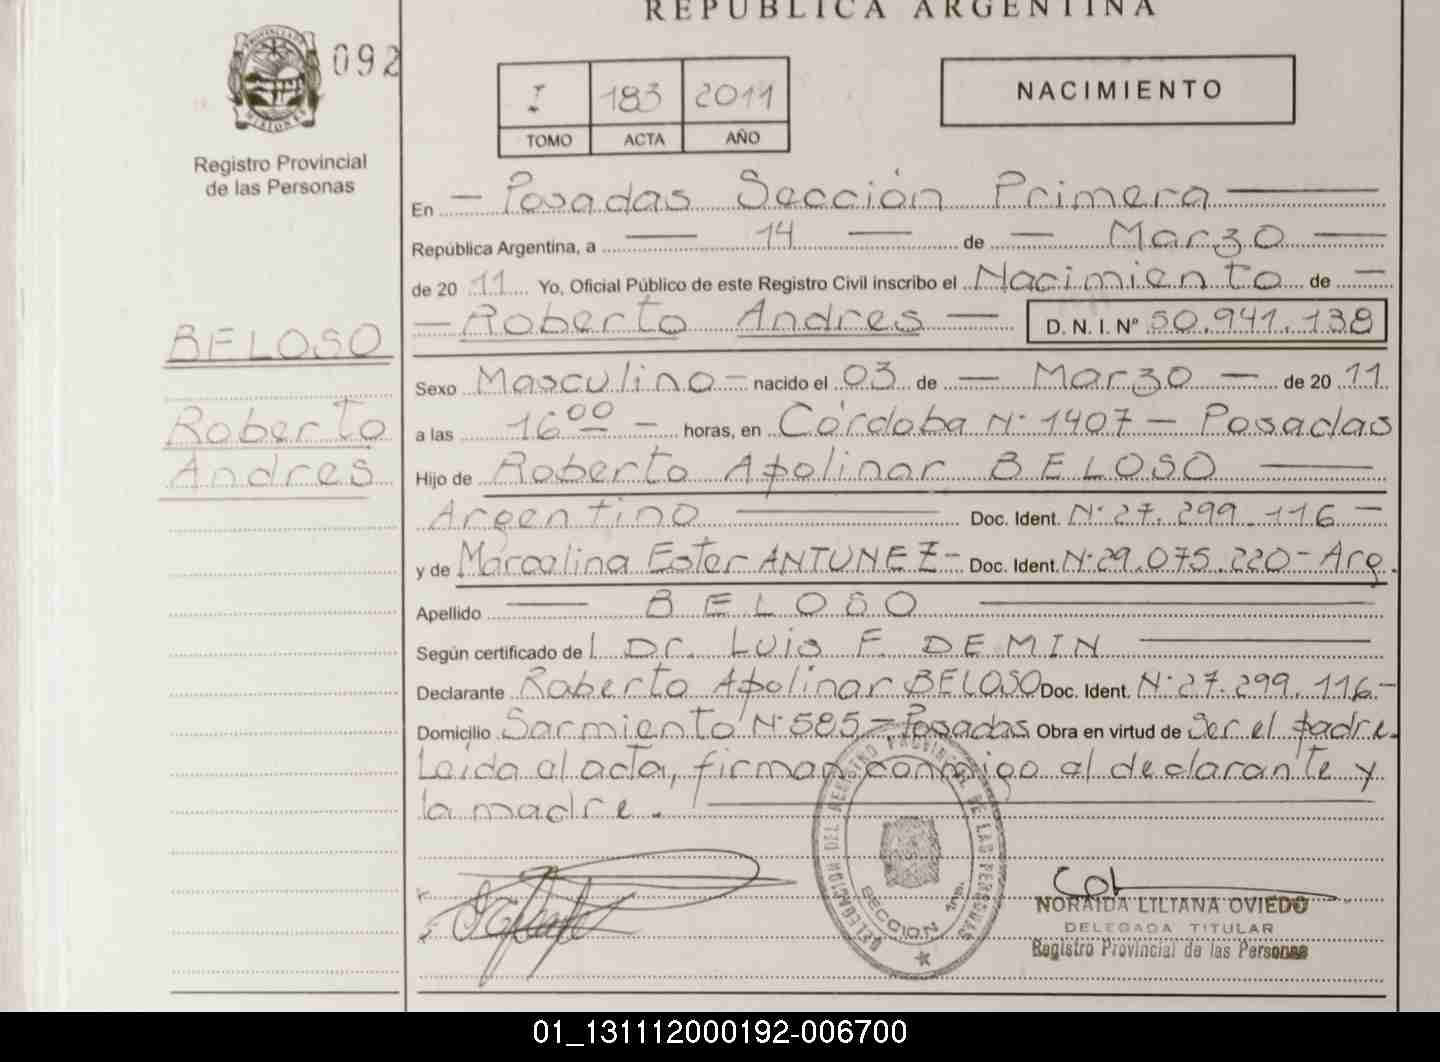 REPÚBLICA ARGENTINA
092
PROVINCIA DE MISIONES
I 183 2011
TOMO ACTA AÑO
NACIMIENTO
Registro Provincial
de las Personas
En — Posadas Sección Primera —
República Argentina, a — 14 — de — Marzo —
de 2011 Yo, Oficial Público de este Registro Civil inscribo el Nacimiento de —
— Roberto Andres — D. N. I. Nº 50.941.138
BELOSO
Roberto
Andres
Sexo Masculino — nacido el 03 de — Marzo — de 2011
a las 16 00 — horas, en Córdoba Nº 1407 — Posadas
Hijo de Roberto Apolinar BELOSO —
Argentino — Doc. Ident. Nº 27.299.116 —
y de Marcelina Ester ANTUNEZ — Doc. Ident. Nº 29.075.220 - Arg.
Apellido — BELOSO —
Según certificado de Dr. Luis F. DEMIN —
Declarante Roberto Apolinar BELOSO Doc. Ident. Nº 27.299.116 —
Domicilio Sarmiento Nº 585 — Posadas Obra en virtud de Ser el padre.
Leída el acta, firman conmigo el declarante y
la madre. —
DELEGACION DEL REGISTRO PROVINCIAL DE LAS PERSONAS
SECCION 1ra.
NORAIDA LILIANA OVIEDO
DELEGADA TITULAR
Registro Provincial de las Personas
01_131112000192-006700